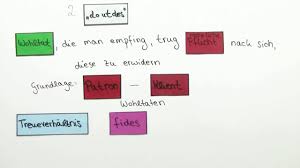 2 „do ut des"
Wohltat, die man empfing, trug Pflicht nach sich,
diese zu erwidern
Grundlage: Patron — Klient
Wohltaten
Treueverhältnis fides